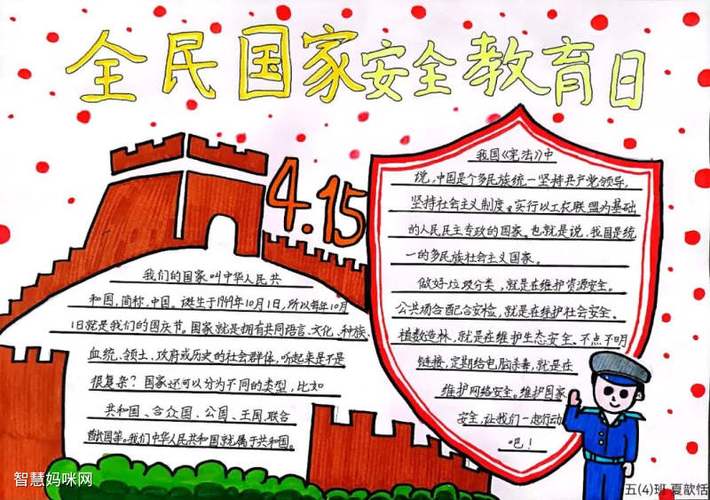 全民国家安全教育日
4.15
我们的国家叫中华人民共
和国,简称中国。诞生于1949年10月1日,所以每年10月
1日就是我们的国庆节。国家就是拥有共同语言、文化、种族、
血统、领土、政府或历史的社会群体,听起来是不是
很复杂?国家还可以分为不同的类型,比如
共和国、合众国、公国、王国、联合
酋国等。我们中华人民共和国就属于共和国。
我国《宪法》中
说,中国是个多民族统一坚持共产党领导,
坚持社会主义制度。实行以工农联盟为基础
的人民民主专政的国家。也就是说,我国是统
一的多民族社会主义国家。
做好垃圾分类,就是在维护资源安全。
公共场合配合安检,就是在维护社会安全。
植数造林,就是在维护生态安全。不点不明
链接,定期给电脑杀毒,就是在
维护网络安全。维护国家
安全,让我们一起行动
吧!
智慧妈咪网
五(4)班 夏歆恬